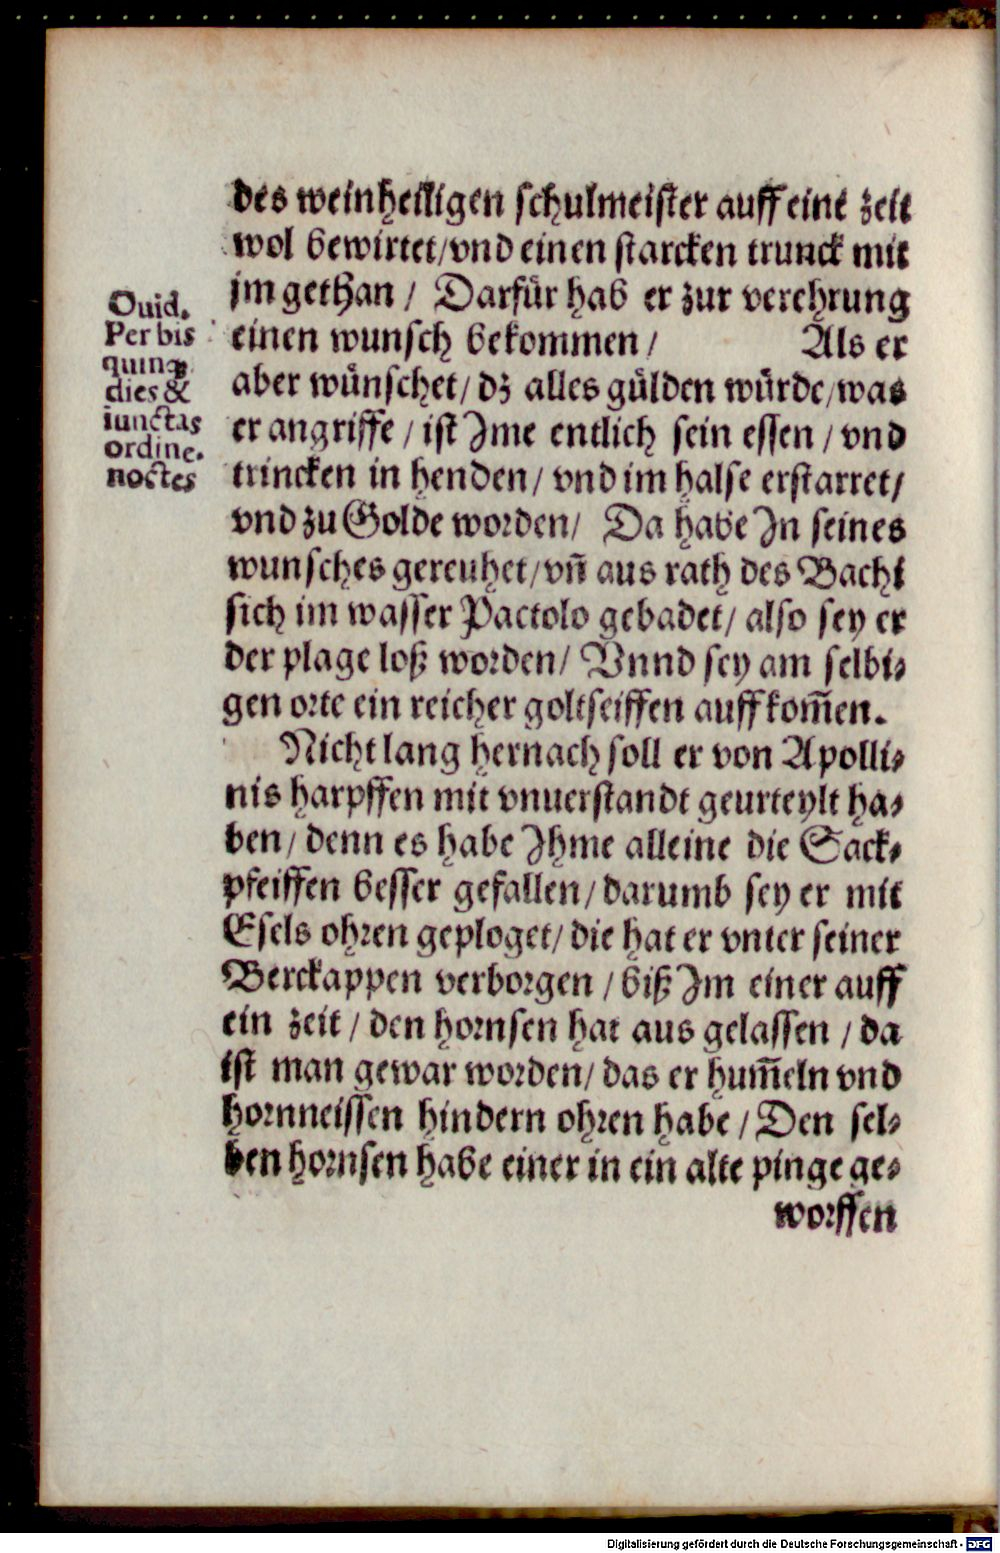 des weinheiligen schulmeister auff eine zeit
wol bewirtet/vnd einen starcken trunck mit
jm gethan / Darfür hab er zur verehrung
einen wunsch bekommen / Als er
aber wünschet/ dz alles gülden würde/was
er angriffe / ist Jme entlich sein essen / vnd
trincken in henden/ vnd im halse erstarret/
vnd zu Golde worden/ Da habe Jn seines
wunsches gereuhet/vñ aus rath des Bachi
sich im wasser Pactolo gebadet/ also sey er
der plage loß worden/ Vnnd sey am selbi-
gen orte ein reicher goltseiffen auff kom̃en.
Nicht lang hernach soll er von Apolli-
nis harpffen mit vnuerstandt geurteylt ha-
ben/ denn es habe Jhme alleine die Sack-
pfeiffen besser gefallen/ darumb sey er mit
Esels ohren geploget/ die hat er vnter seiner
Berckappen verborgen / biß Jm einer auff
ein zeit / den hornsen hat aus gelassen / da
ist man gewar worden/ das er hum̃eln vnd
hornneissen hindern ohren habe / Den sel-
ben hornsen habe einer in ein alte pinge ge-
worffen
Ouid.
Per bis
quinq;
dies &
iunctas
ordine.
noctes
Digitalisierung gefördert durch die Deutsche Forschungsgemeinschaft - DFG